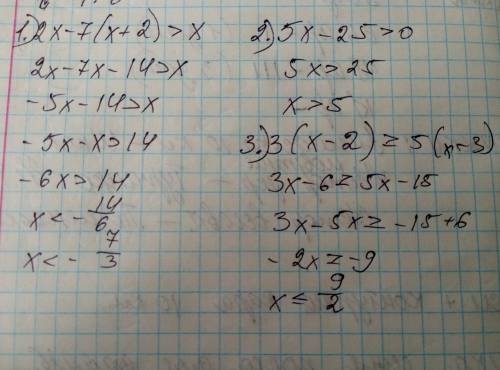 1.) 2x-7(x+2)>x
2x-7x-14>x
-5x-14>x
-5x-x>14
-6x>14
x<-14/6
x<-7/3
2.) 5x-25>0
5x>25
x>5
3.) 3(x-2)≥5(x-3)
3x-6≥5x-15
3x-5x≥-15+6
-2x≥-9
x≤9/2